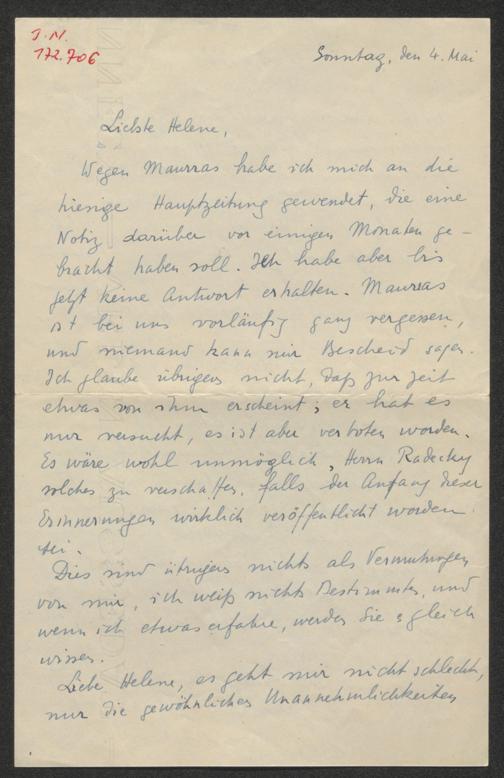 I.N.
172.706
Sonntag, den 4. Mai
Liebste Helene,
Wegen Maurras habe ich mich an die
hiesige Hauptzeitung gewendet, die eine
Notiz darüber vor einigen Monaten ge-
bracht haben soll. Ich habe aber bis
jetzt keine Antwort erhalten. Maurras
ist bei uns vorläufig ganz vergessen,
und niemand kann mir Bescheid sagen.
Ich glaube übrigens nicht, daß zur Zeit
etwas von ihm erscheint; er hat es
nur versucht, es ist aber verboten worden.
Es wäre wohl unmöglich, Herrn Radecky
solches zu verschaffen, falls der Anfang dieser
Erinnerungen wirklich veröffentlicht worden
sei.
Dies sind übrigens nichts als Vermutungen
von mir, ich weiß nichts Bestimmtes, und
wenn ich etwas erfahre, werden Sie es gleich
wissen.
Liebe Helene, es geht mir nicht schlecht,
nur die gewöhnlichen Unannehmlichkeiten